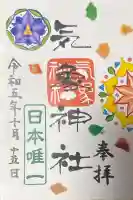 奉拝
気象神社
日本唯一
令和五年十月十五日